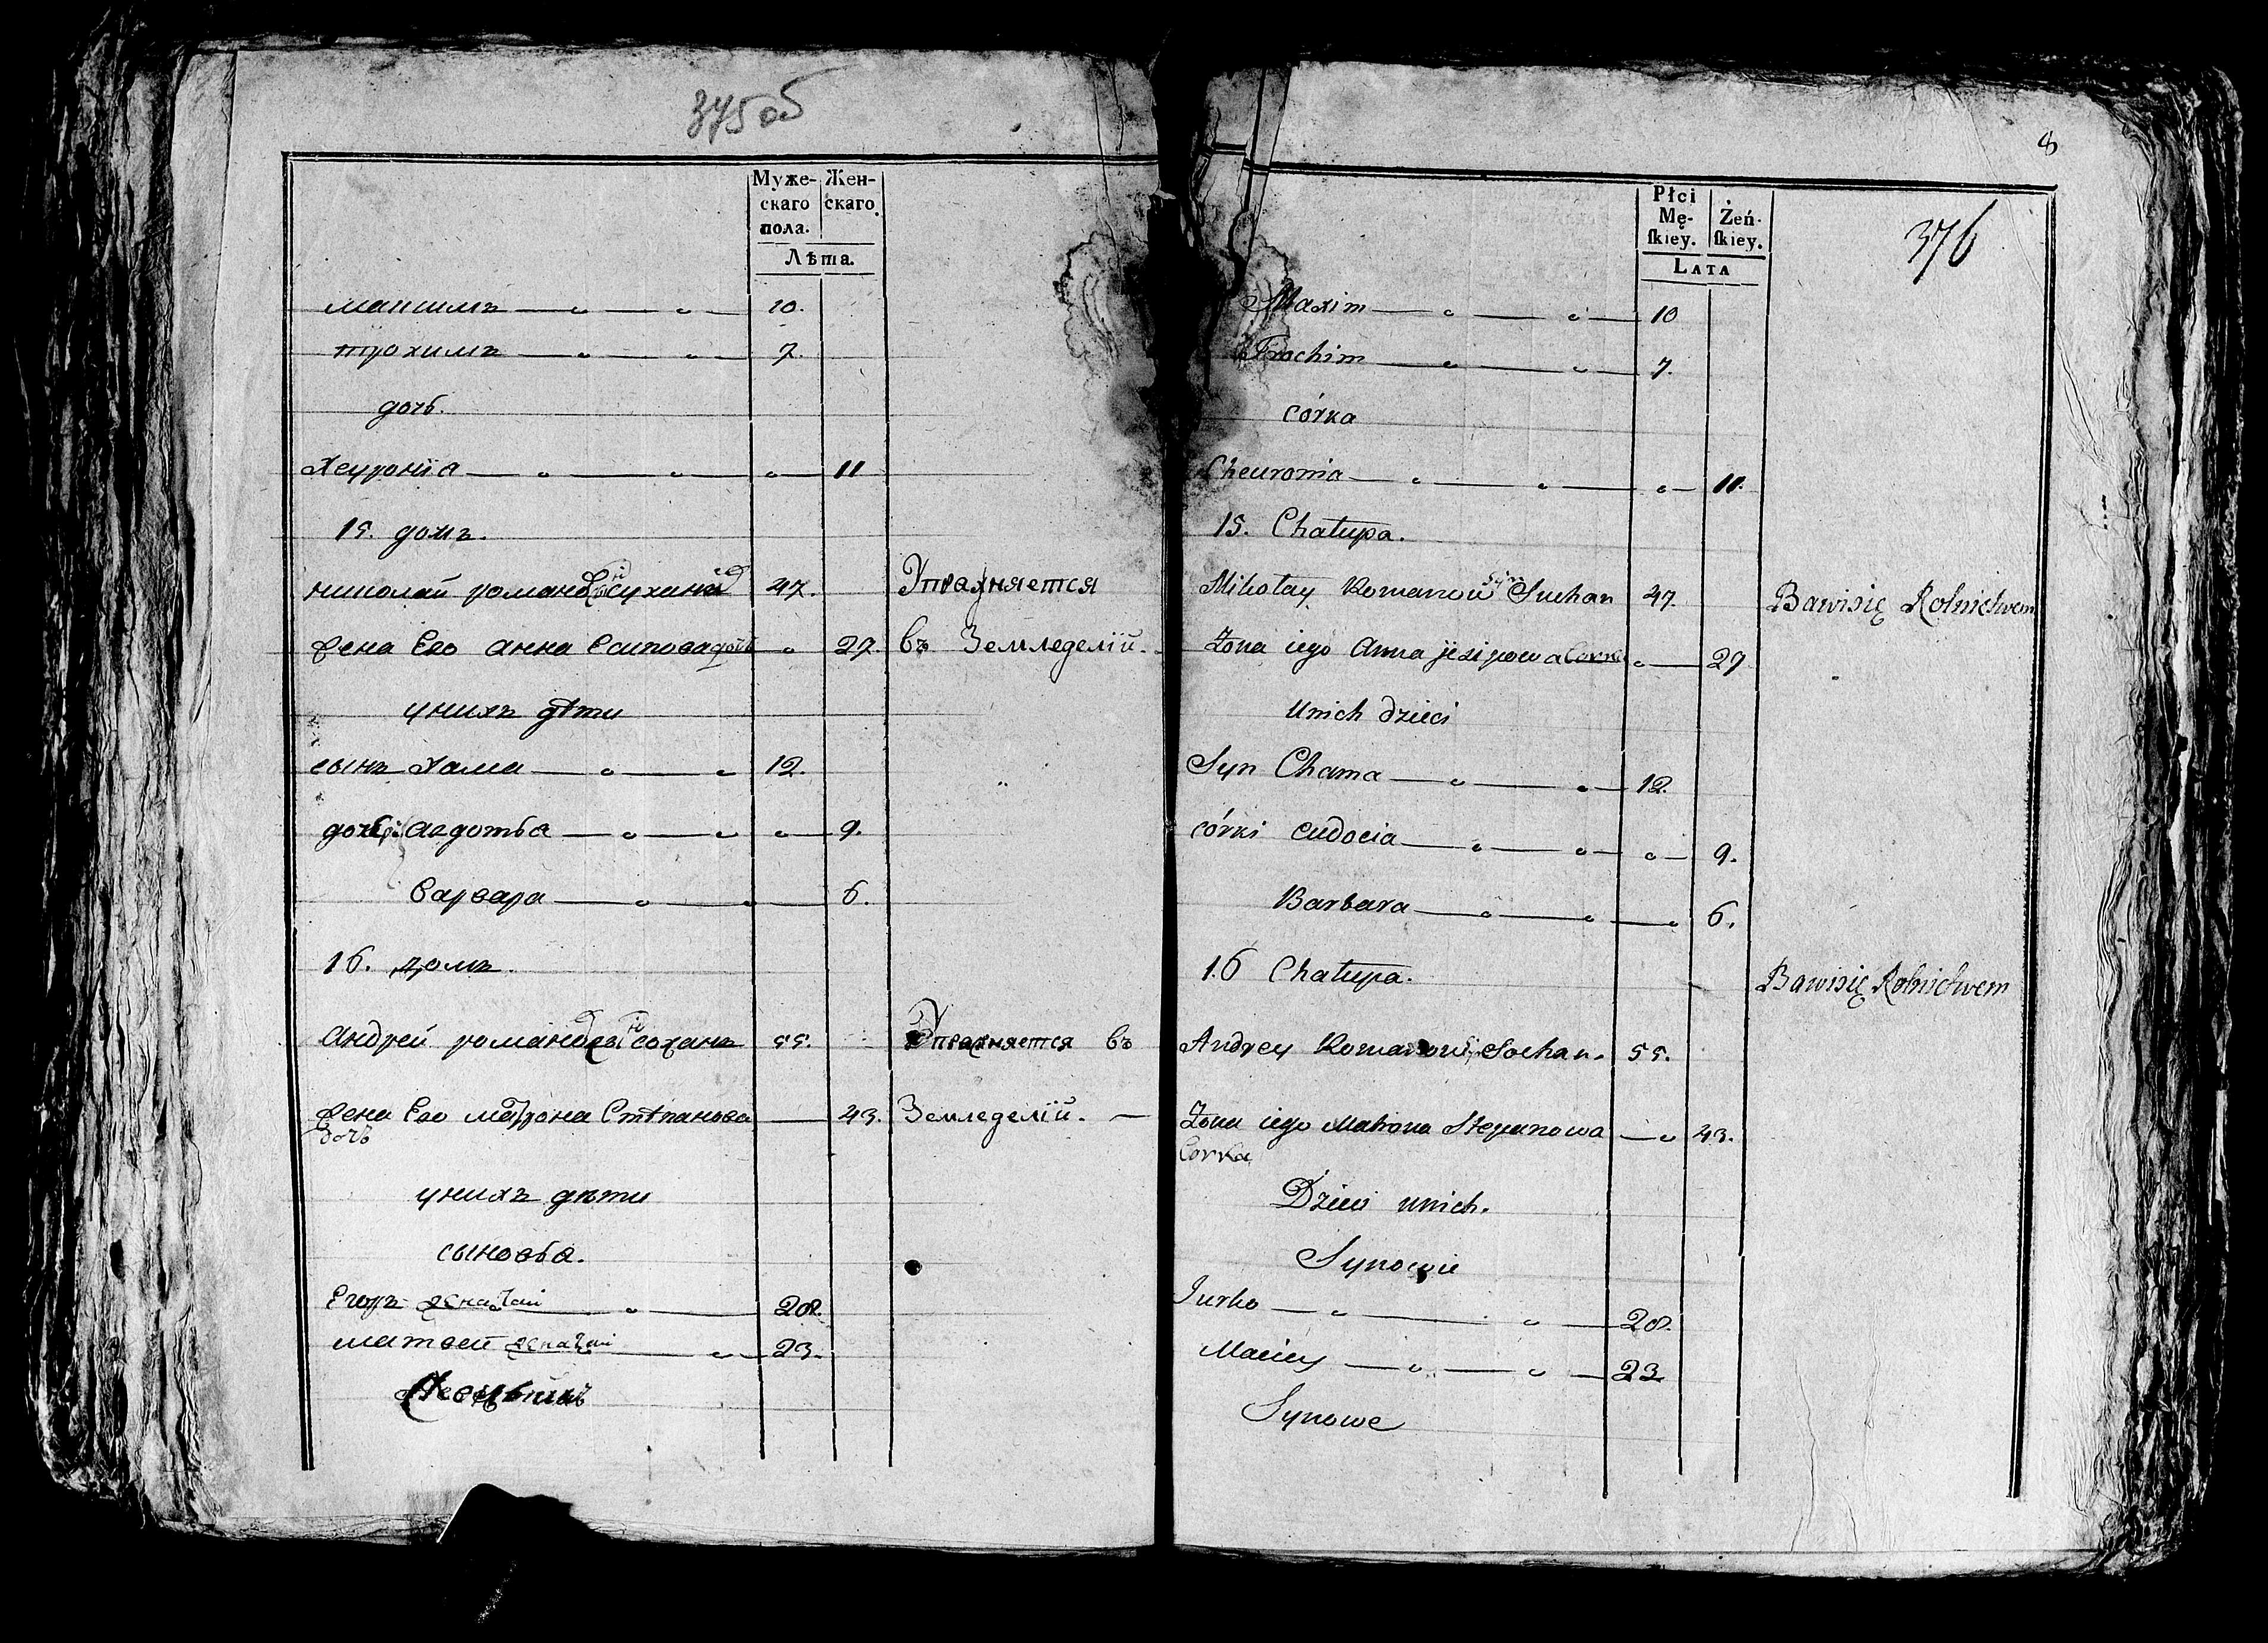 375об
Муже- Жен-
скаго скаго
пола.
Лѣта.
максимъ 10.
трохимъ 7.
дочь.
Хеуронïа 11
15. домъ.
николай романовъ сухана 47. Упражняется
жена Его анна Есипова дочь 27. въ Земледелïи.
унихъ дѣти
сынъ Хама 12.
дочери авдотьа 9.
варвара 6.
16. домъ.
Андрей романовъ соханъ 55. Упражняется въ
жена Его матрона Стѣпанова 43. Земледелïи.
дочъ
унихъ дѣти
сыновьа.
Егоръ женатый 28.
матвей женатый 23.
8
376
Płci Żeń-
Mę- skiey.
skiey.
LATA
Maxim 10
Trochim 7.
córka
Cheuronia 11.
15. Chałupa.
Mikołay Romanow syn Suchan 47. Bawisię Rolnictwem
Żona iego Anna jezipowa Corka 27
Unich dzieci
Syn Chama 12.
córki eudocia 9.
Barbara 6.
16 Chałupa.
Bawisię Rolnictwem
Andrey Romanow Sochan. 55.
Żona iego Matrona Stepanowa 43.
Corka
Dzieci unich.
Synowie
Jurko 28.
Maciey 23
Synowe